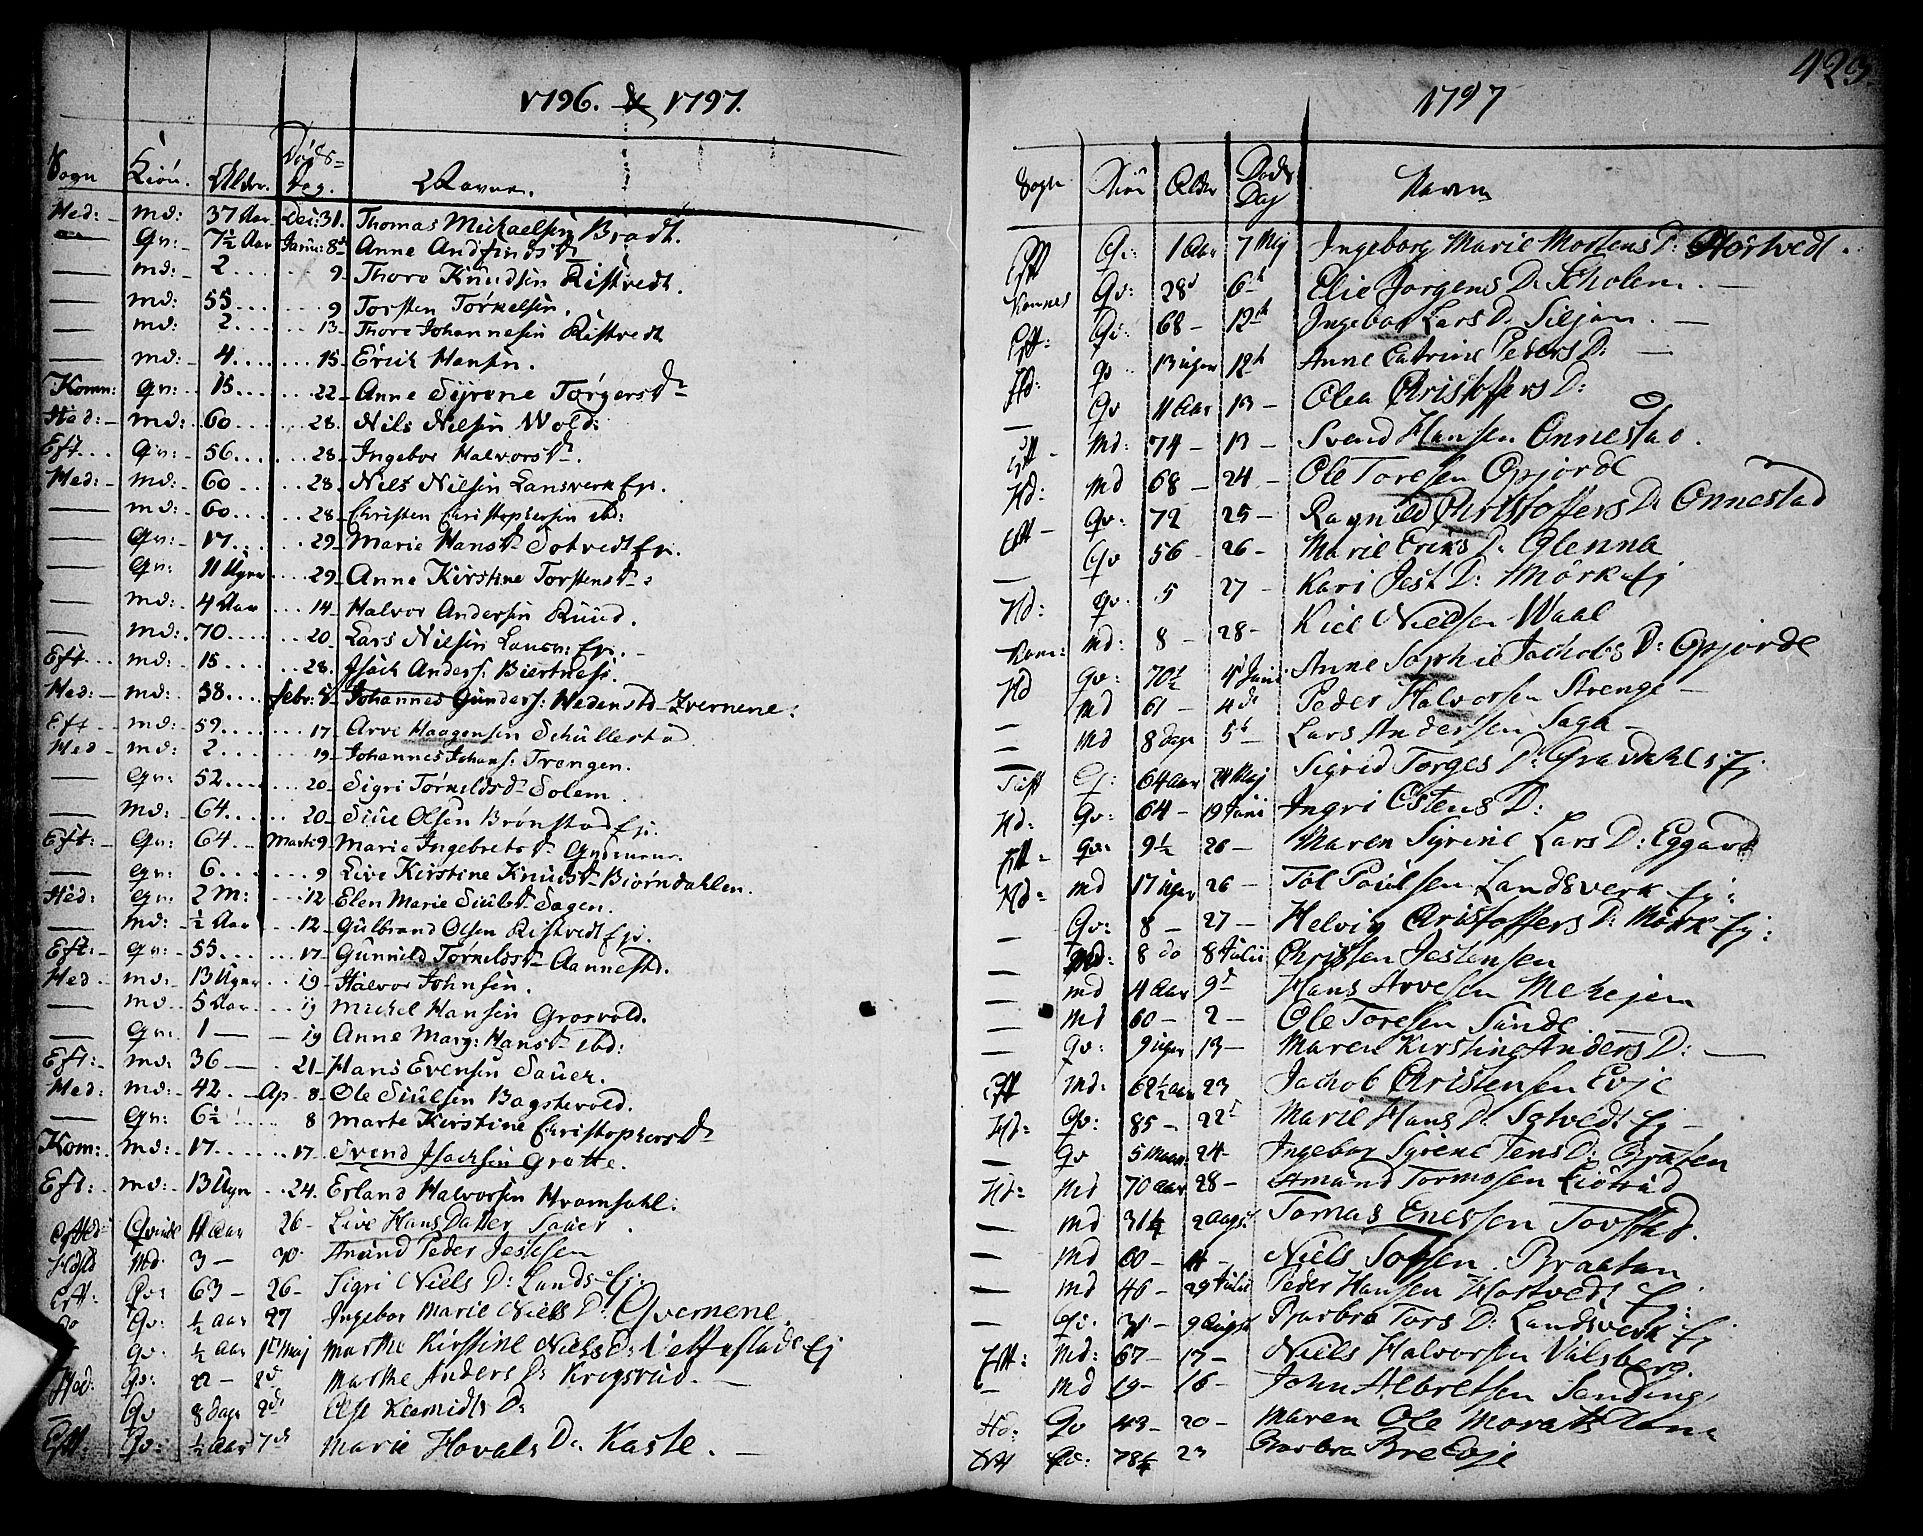 1796. & 1797.
Sogn Kiön. Alder. Döds-Dag. Navne.
Hed: md: 37 Aar Dec: 31. Thomas Michaelsen Bradt.
— Qv: 7½ Aar Janu: 8de Anne Andfindsdr
— md: 2 9 Thore Knudsen Ristvedt.
— md: 55 9 Torsten Törkelsen.
— md: 2 13 Thore Johannesen Ristvedt
— md: 4 15 Erich Hansen.
Komn: Qv: 15 22 Anne Syrene Torgersdr
Hed: md: 60 28 Nils Nilsen Wold:
Eft. Qv: 56 28 Ingebor Halvorsdr.
Hed: md: 60 28 Nils Nilsen Lansverk Ejr.
— md: 60 28 Christen Christophersen ibd:
— Qv: 17 29 Marie Hansdr Sotvedt Ejr.
— Qv: 11 Uger 29 Anne Kirstine Torstensdr:
— md: 4 Aar 14 Halvor Andersen Ruud.
— md: 70 20 Lars Nilsen Lansv: Ejr.
Eft md: 15 28 Isach Anders: Biertnesi.
Hed: md: 38 Febr: 8 Johannes Gunders: Hedenstd Kvernene:
Eft md: 59 17 Arve Haagensen Schullerstad
Hed md: 2 19 Johannes Johans: Trengen.
— Qv: 52 20 Sigri Törkeldsdr Solem.
— md: 64 20 Siul Olsen Brönstad Ejr.
Eft: Qv: 64 Marti 9 Marie Ingebretsdr
— Qv: 6 9 Live Kirstine Knudsdr Biörndahlen.
Hed: Qv: 2 M: 12 Elen Marie Siulsdr Sagen.
— md: ½ Aar 12 Gulbrand Olsen Ristvedt Ejr.
Eft: Qv: 55 17 Gunnild Törkeldsdr Aannestd.
Hed md: 13 Uger 19 Halvor Johnsen.
— md 5 Aar 19 Michel Hansen Grosvold.
— Qv: 1 19 Anne Marg: Hansdr ibd:
Eft: md: 36 21 Hans Evensen Sauer.
Hed: md: 42 Ap 8 Ole Siulsen Bagstevold.
— Qv: 6½ 8 Marte Kirstine Christophersdr
Kom: md: 17 17 Svend Isachsen Grotte.
Eft: md: 13 Uger 24. Erland Halvorsen Hvamsahl.
Qvinde 11 Aar 26 Live Hans Datter Sauer.
Md: 3 30 Peder Jestesen
Eft: Qv: 63 26 Sigri Niels D: Lands Ej:
do Qv: ½ Aar 27 Ingebor Marie Niels D: Qvernene.
Qv: ½ Aar 1ste Maj Marthe Kirstine Niels D: Vettestad Ej
Hed: Qv: 22 2d Marthe Anders D: Krogsrud.
— Qv 8 dage 2d Else D:
Eft: Qv: ½ Aar 7d Marie Hovals D: Kaste.
423.
1797
Sogn Kiön Alder Döds Dag Navn
Eft Qv: 1 Aar 7 Maj Ingeborg Marie Mortens D: Hostvedt.
Komnes Qv: 28 6t Elie Jorgens D: Skolem.
Eft: Qv: 68 12th Ingebor Lars D: Siljan.
Hd: Q 13 uger 12th Anne Catrine Peders D:
— Qv 11 Aar 13 Olea Christoffers D:
Eft Md: 74 13 Svend Hansen Onnestad.
Hd: Md 68 24 Ole Toresen Opjorde
Eft Qv: 72 25 Ragnild Christoffers D: Onnestad
— Qv 56 26 Marie Eriks D: Olenna
Hd: Qv: 5 27 Kari Jest D: Mörk Ej
Kom: Md: 8 28 Kiel Nielsen Waal
Hd Qv: 70½ 4 Juni Anne Sophie Jachobs D: Opjorde
— Md 61 4de Peder Halvorsen Strenge
— Md 8 dage 5t Lars Anderssen Saga
Eft Q: 64 Aar 24 Maj Sigrid Torges D: Gravdahls Ej
Hd: Qv: 64 19 Juni Ingri Ostens D:
Eft Qv: 9½ 26 Maren Syrine Lars D: Eggard
Hd: Md 17 uger 26 Tol Poulsen Landsverk Ej:
— Qv: 8 27 Helvig Christoffers D: Mörk Ej:
— Md: 8 do 8 Julii Christen Jestensen
— md 4 Aar 9d Hans Arvesen Mehejen
— md 60 2 Ole Toresen Sunde
— Qv: 9 uger 13 Maren Kirstine Anders D:
Eft Md: 62½ Aar 23 Jachob Christensen Evje
Hd: Qv: 85 22d Marie Hans D: Sotvedt Ej
— Qv 5 Maan: 24 Ingebor Syrene Jens D: Bråten
Hd: Md 70 Aar 28 Amund Tormosen Liöterud
— Md 31½ 2 Augs Tomas Enessen Torstad.
— Md 60 11 Niels Torsen Braatan
— Md 46 29 Julii Peder Hansen Hostvedt Ej:
— Qv: 31 9 Augst Barbro Tors D: Landsverk Ej
Eft: Md: 67 17 Niels Halvorsen Valsberg
— Md 19 16 John Albretsen Sanding
Hd: Qv 43 20 Maren Ole
Eft Qv: 78½ 23 Barbra Bre Evje